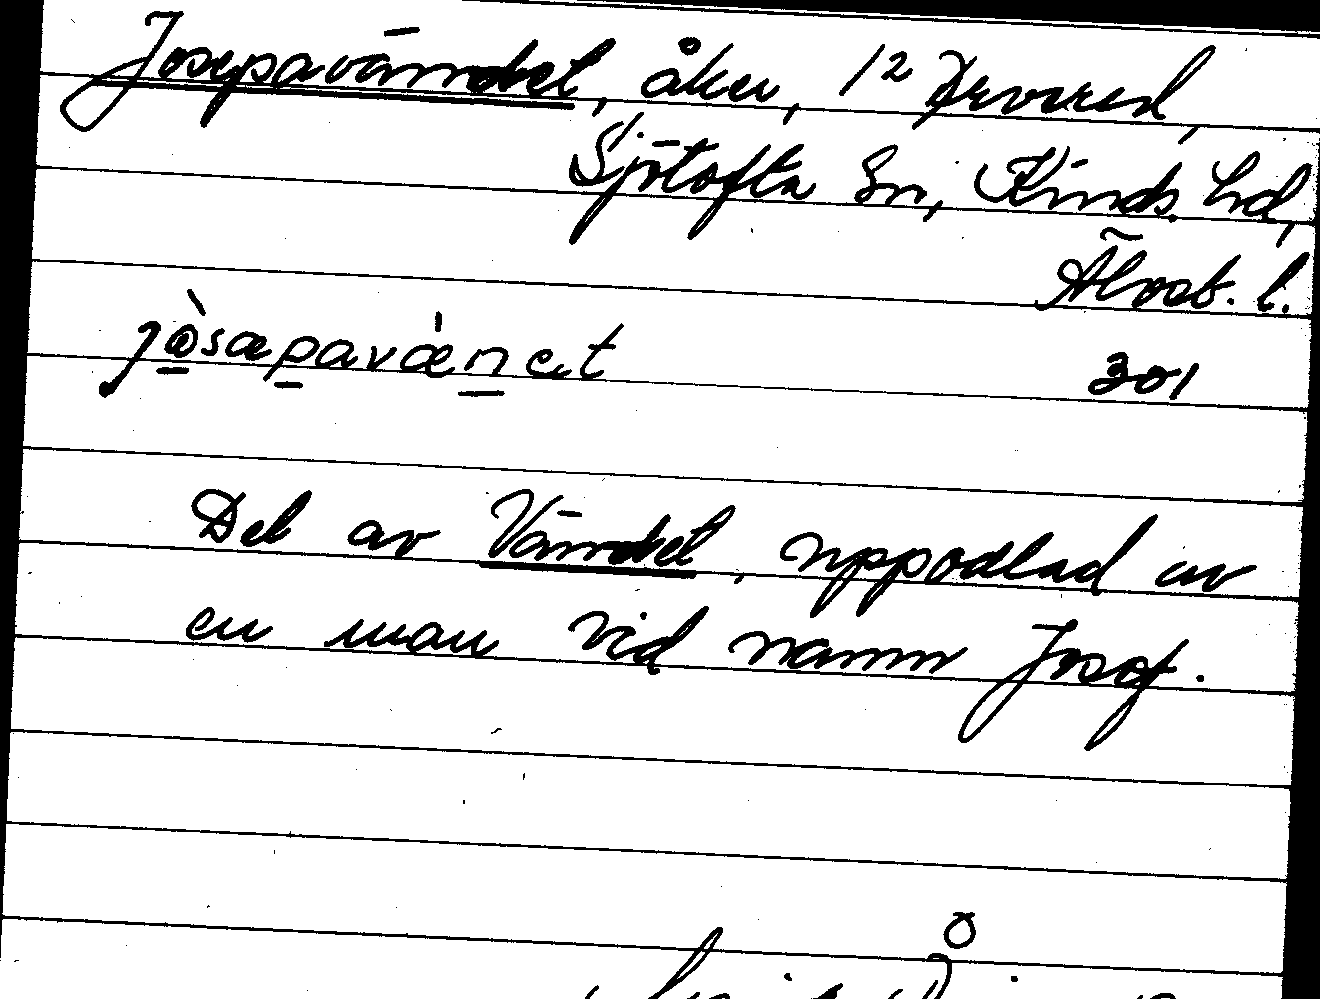 Josepavändet, åker, 1² Ärvared,
Sjötofta Sn, Kinds hd,
Älvsb. l.
jòsæpavæ'net 301
Del av Vändet, uppodlad av
en man vid namn Josef.